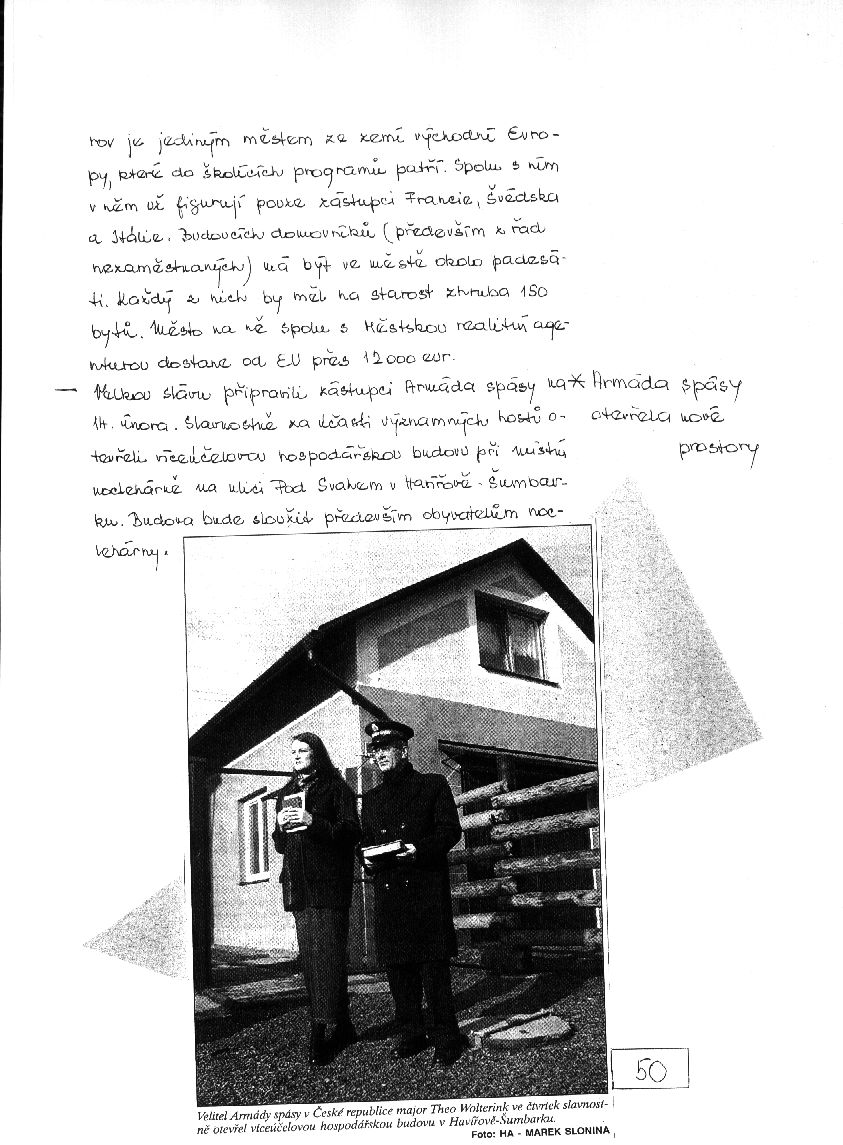 rov je jediným městem ze zemí východní Evro-
py, které do školících programů patří. Spolu s ním
v něm už figurují pouze zástupci Francie, Švédska
a Itálie. Budoucích domovníků (především z řad
nezaměstnaných) má být ve městě okolo padesá-
ti. Každý z nich by měl na starost zhruba 150
bytů. Město na ně spolu s Městskou realitní age-
nturou dostane od EU přes 12 000 eur.
— Velkou slávu připravili zástupci Armáda spásy na * Armáda spásy
14. února. Slavnostně za účasti významných hostů o- otevřela nové
tevřeli víceúčelovou hospodářskou budovu při místní prostory
noclehárně na ulici Pod Svahem v Havířově - Šumbar-
ku. Budova bude sloužit především obyvatelům noc-
lehárny.
Velitel Armády spásy v České republice major Theo Wolterink ve čtvrtek slavnost-
ně otevřel víceúčelovou hospodářskou budovu v Havířově-Šumbarku.
Foto: HA - MAREK SLONINA
50